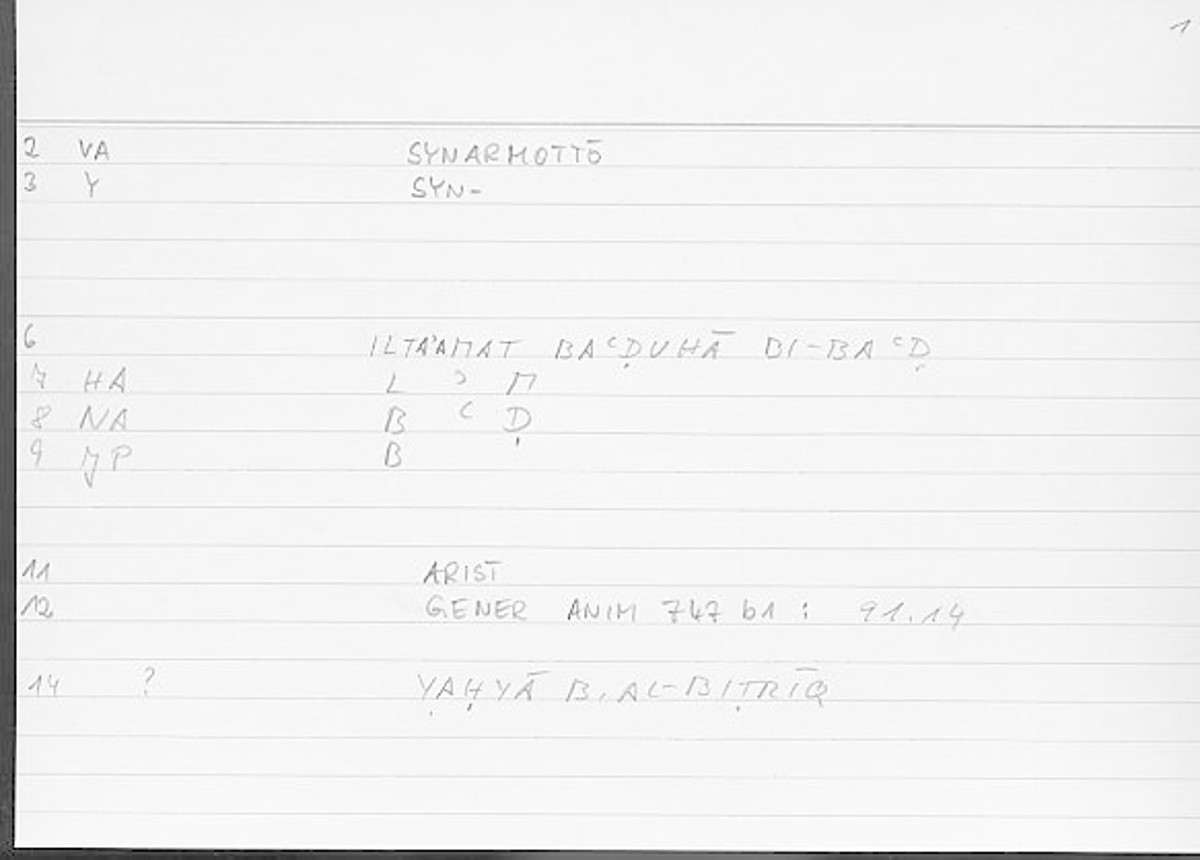 1
2 VA SYNARMOTTŌ
3 Y SYN-
6 ILTAʾAMAT BAʿḌUHĀ BI-BAʿḌ
7 HA L ʾ M
8 NA B ʿ Ḍ
9 JP B
11 ARIST
12 GENER ANIM 747 b1 : 91.14
14 ? YAḤYĀ B. AL-BIṬRĪQ